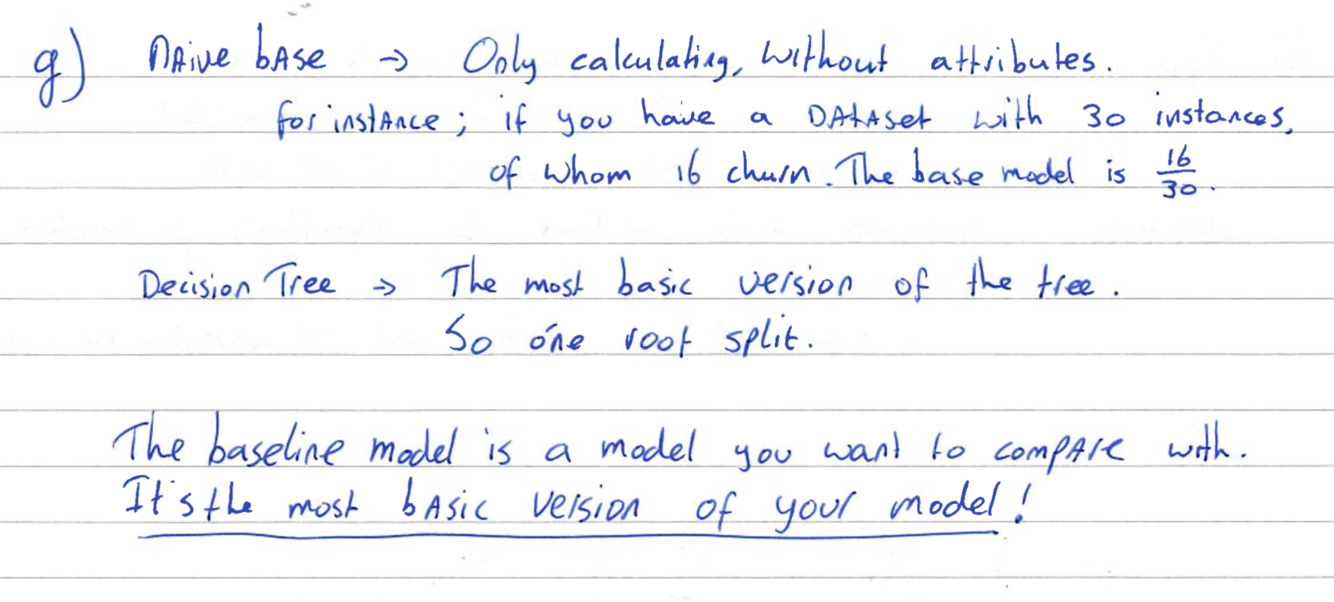 g) Naive base → Only calculating, without attributes.
for instance; if you have a dataset with 30 instances,
of whom 16 churn. The base model is 16/30.
Decision Tree → The most basic version of the tree.
So óne root split.
The baseline model is a model you want to compare with.
It's the most basic version of your model!